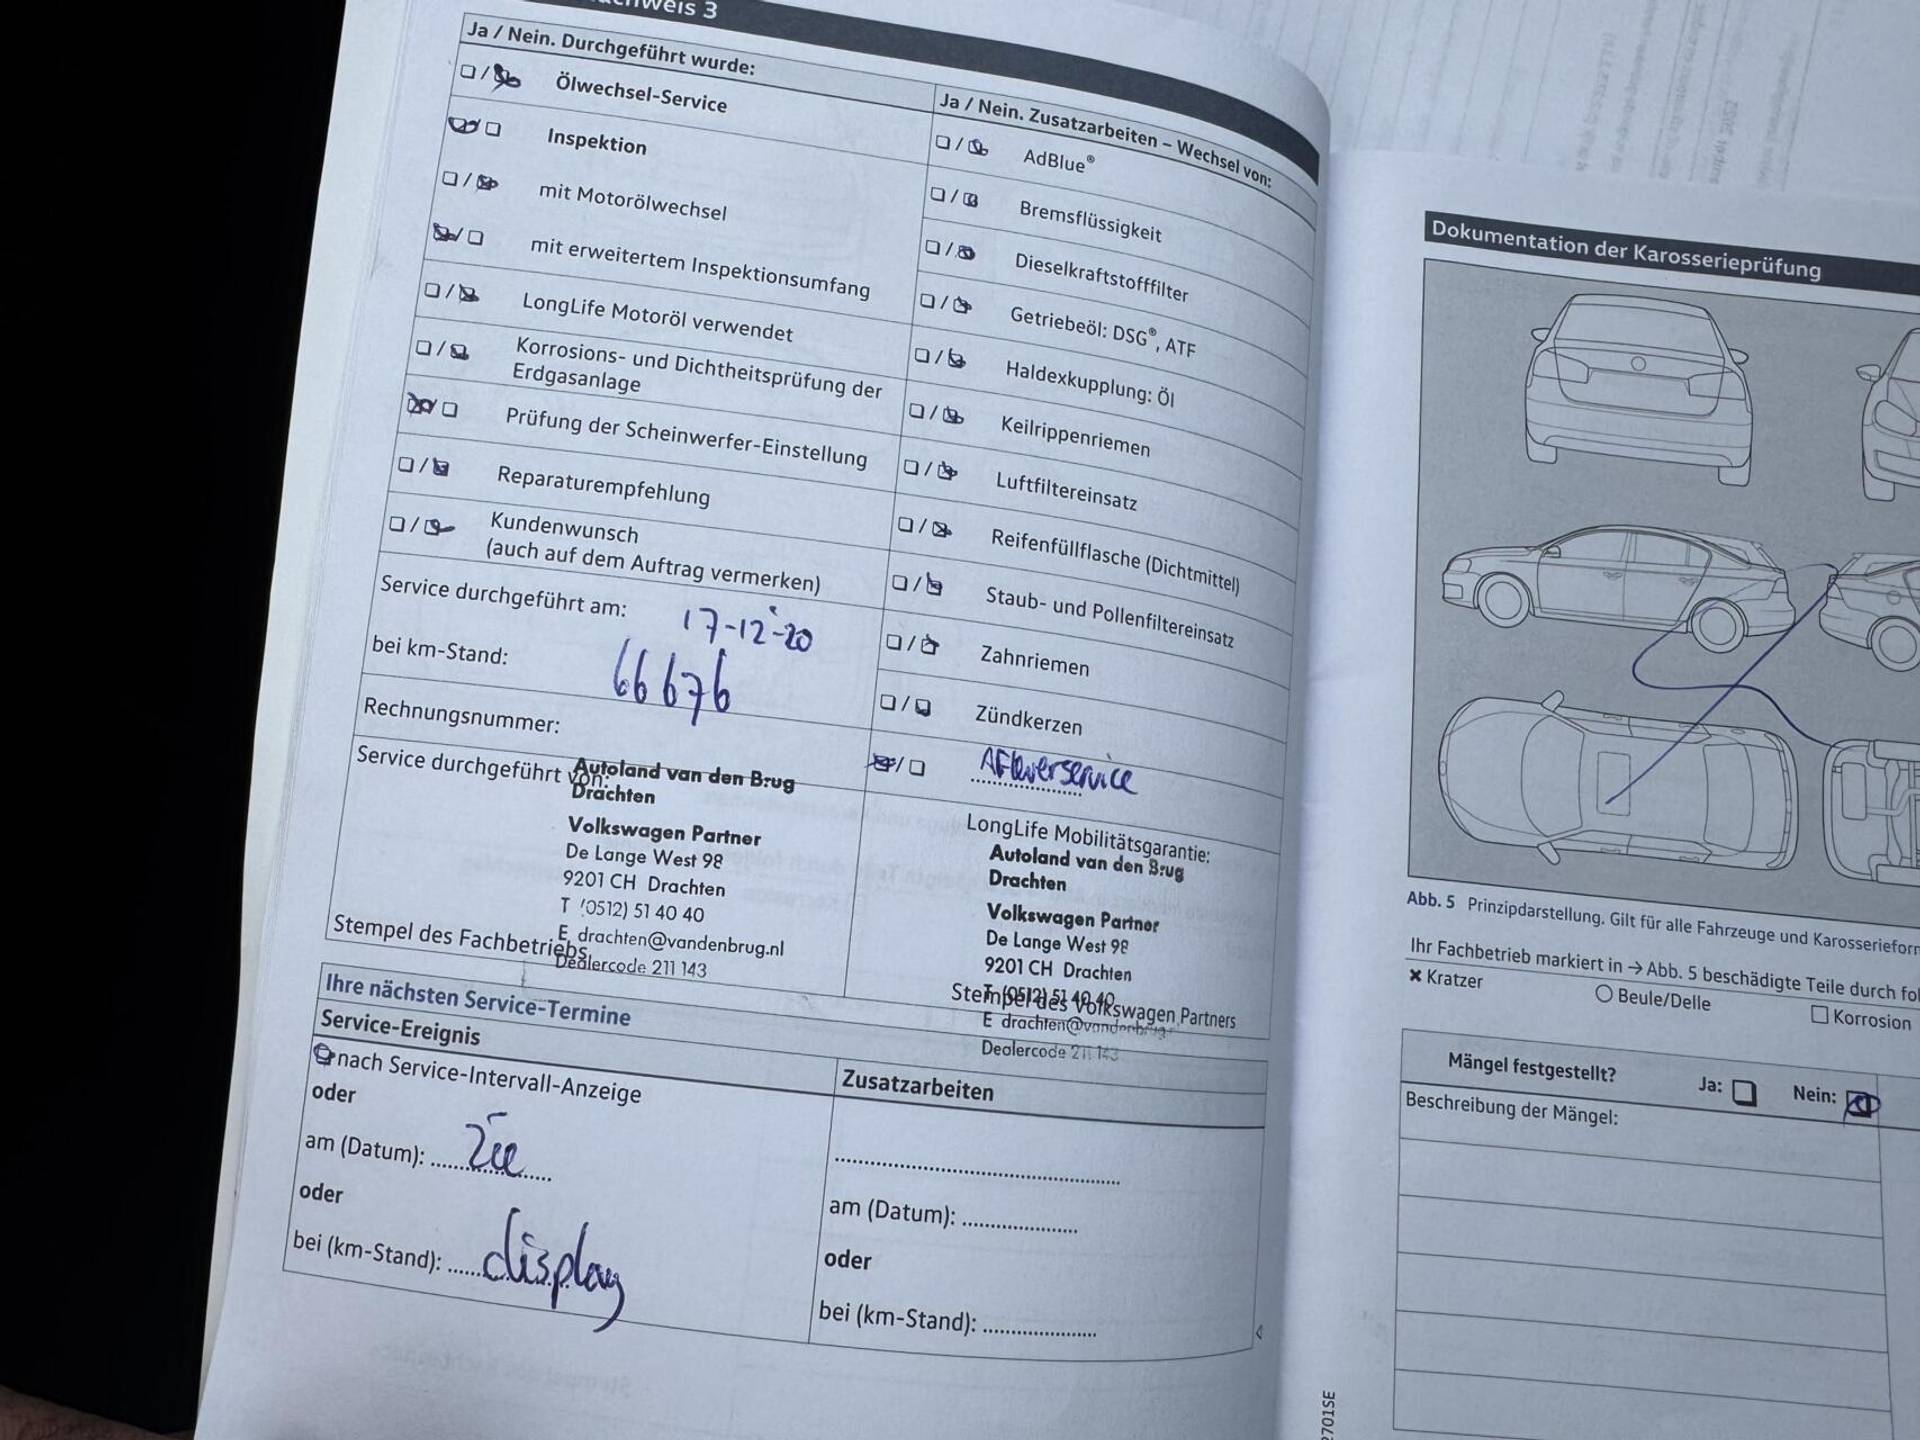 weis 3
Ja / Nein. Durchgeführt wurde:
Ölwechsel-Service
Inspektion
mit Motorölwechsel
mit erweitertem Inspektionsumfang
LongLife Motoröl verwendet
Korrosions- und Dichtheitsprüfung der
Erdgasanlage
Prüfung der Scheinwerfer-Einstellung
Reparaturempfehlung
Kundenwunsch
(auch auf dem Auftrag vermerken)
Service durchgeführt am: 17-12-20
bei km-Stand: 66676
Rechnungsnummer:
Service durchgeführt von:
Autoland van den Brug
Drachten
Volkswagen Partner
De Lange West 98
9201 CH Drachten
T (0512) 51 40 40
E drachten@vandenbrug.nl
Dealercode 211 143
Stempel des Fachbetriebs
Ja / Nein. Zusatzarbeiten – Wechsel von:
AdBlue®
Bremsflüssigkeit
Dieselkraftstofffilter
Getriebeöl: DSG®, ATF
Haldexkupplung: Öl
Keilrippenriemen
Luftfiltereinsatz
Reifenfüllflasche (Dichtmittel)
Staub- und Pollenfiltereinsatz
Zahnriemen
Zündkerzen
Afleverservice
LongLife Mobilitätsgarantie:
Autoland van den Brug
Drachten
Volkswagen Partner
De Lange West 98
9201 CH Drachten
T (0512) 51 40 40
Stempel des Volkswagen Partners
E drachten@vandenbrug
Dealercode 211 143
Ihre nächsten Service-Termine
Service-Ereignis
nach Service-Intervall-Anzeige
oder
am (Datum): zie
oder
bei (km-Stand): display
Zusatzarbeiten
am (Datum):
oder
bei (km-Stand):
Dokumentation der Karosserieprüfung
Abb. 5 Prinzipdarstellung. Gilt für alle Fahrzeuge und Karosserieforn
Ihr Fachbetrieb markiert in → Abb. 5 beschädigte Teile durch fol
× Kratzer
Beule/Delle
Korrosion
Mängel festgestellt? Ja: Nein:
Beschreibung der Mängel:
2701SE